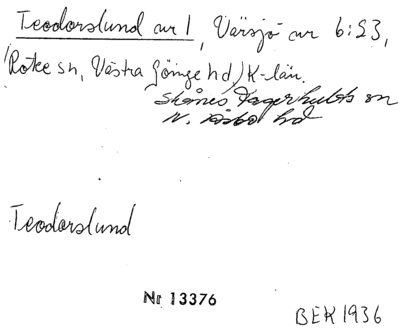 Teodorslund nr 1, Värsjö nr 6:23,
(Röke sn, Västra Göinge hd) K-län.
Skånes Fagerhults sn
N. Åsbo hd
Teodorslund
Nr 13376
BEK 1936